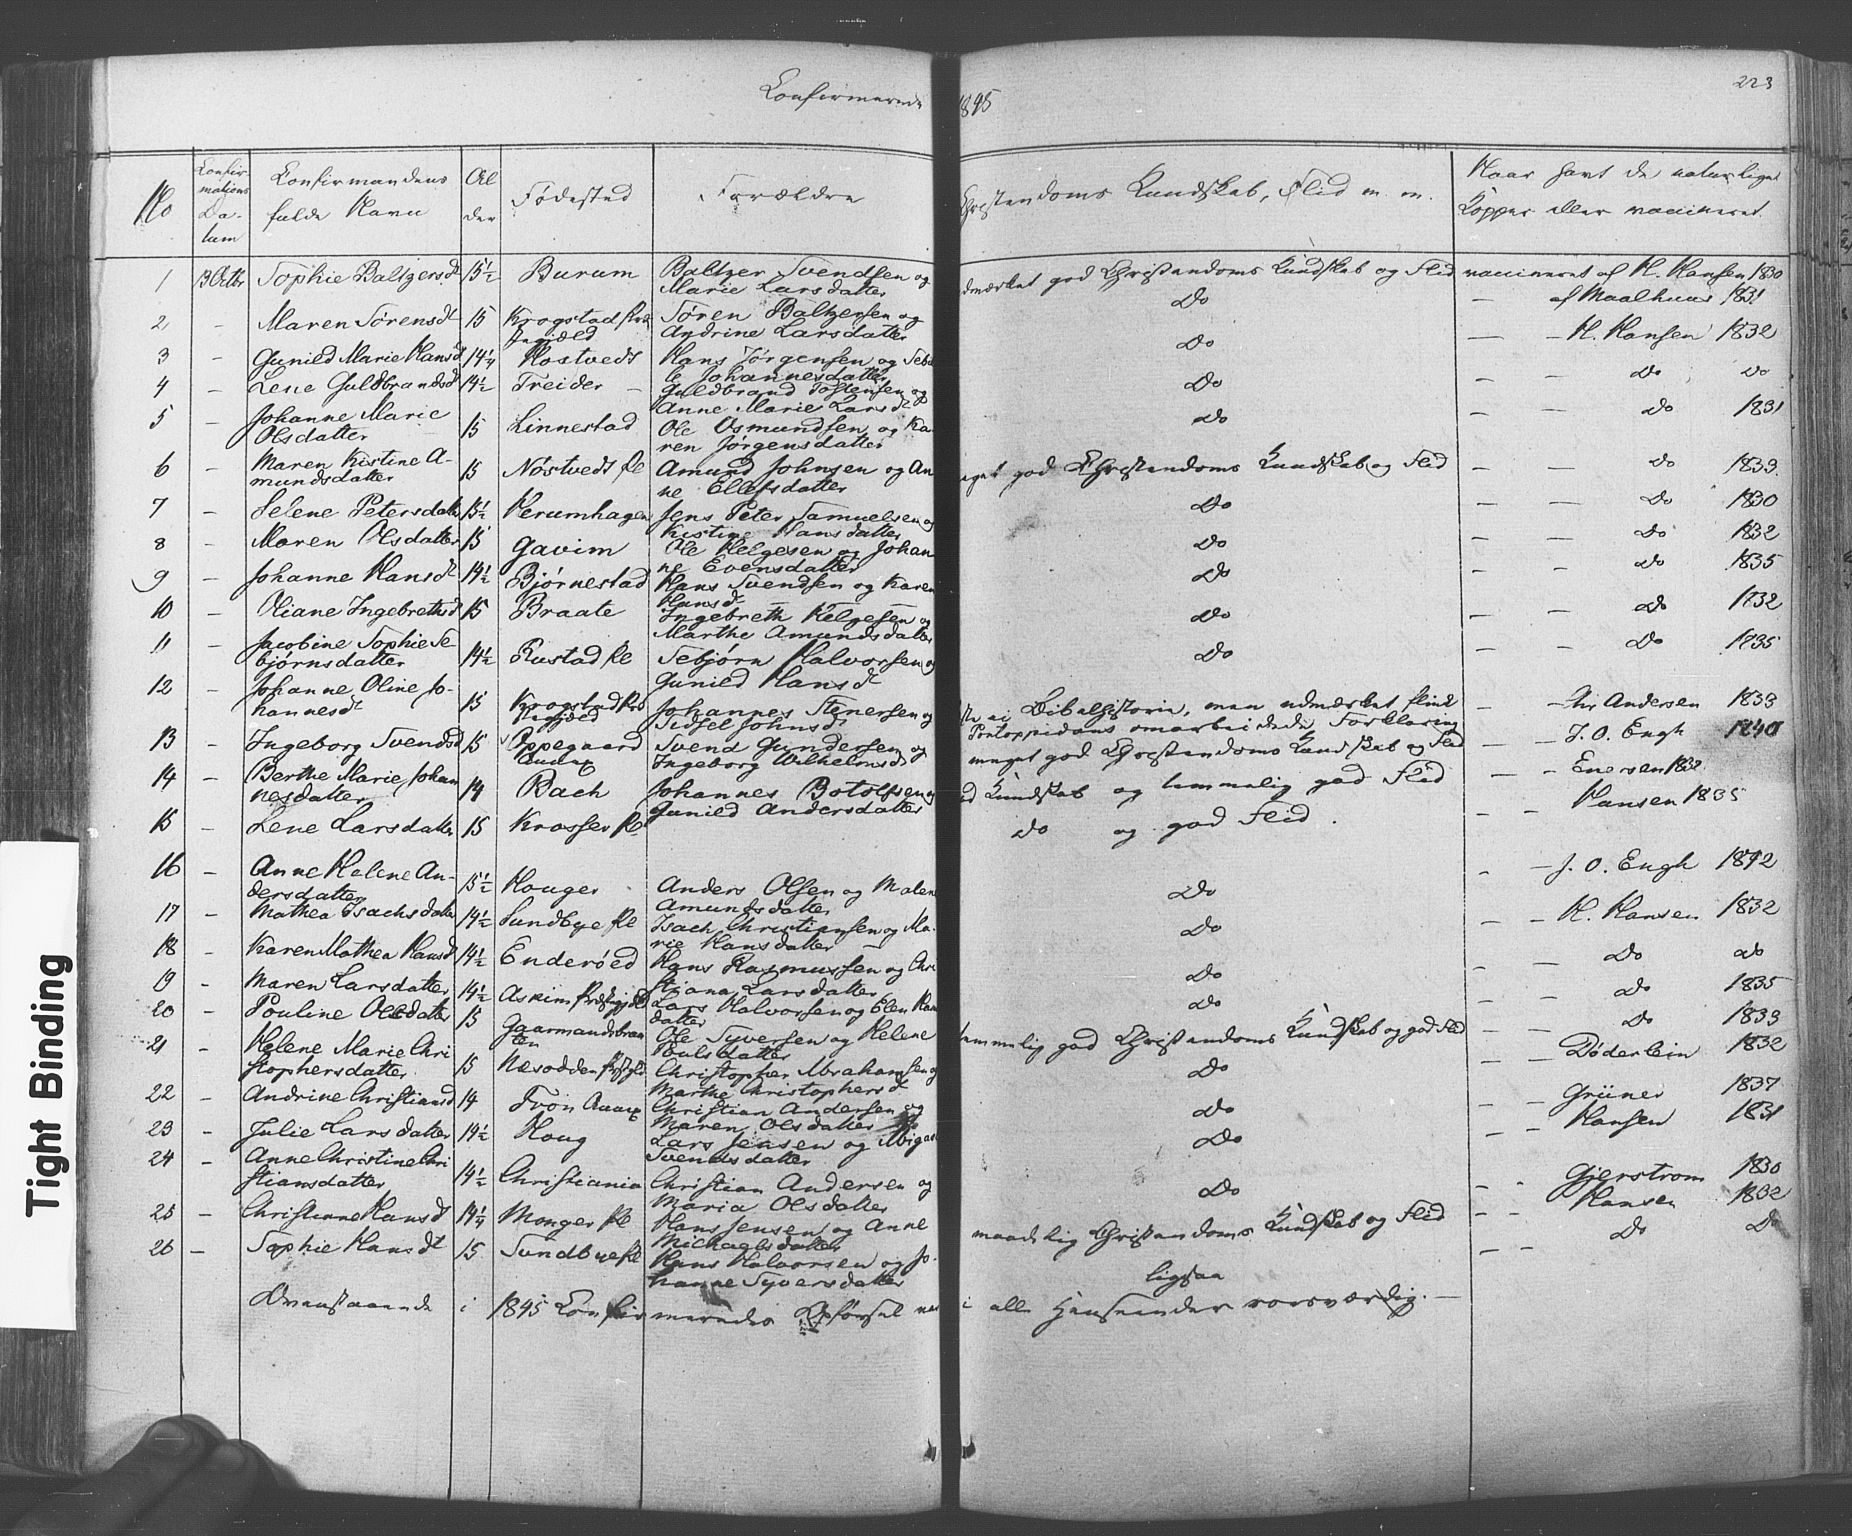 Confirmerede 1845
223
No
Confirmations Datum
Confirmandens fulde Navn
Alder
Fødested
Forældre
Christendoms Kundskab, Flid m. m.
Naar havt de naturlige Kopper eller vaccineret.
1 3 Octbr Sophie Baltzersdt 15½ Burum Baltzer Svendsen og Marie Larsdatter
god Christendoms Kundskab og Flid vaccineret af H. Hansen 1830
2 – Maren Sørensdt 15 Krogstad Søren Baltzersen og Andrine Larsdatter
Do — af Maalhuus 1831
3 – Gunild Marie Hansd 14¼ Hostvedt Hans Jørgensen og Johannesdatter
Do — – H. Hansen 1832
4 – Lene Guldbrandsdt 14½ Treider – Guldbrand Tostensen og Anne Marie Larsdt
Do – – Do Do
5 – Johanne Marie Olsdatter 15 Linnestad Ole Osmundsen og Karen Jørgensdatter
Do – – Do 1831
6 – Maren Kistine Amundsdatter 15 Nøstvedt Amund Johnsen og Anne Ellefsdatter
god Christendoms Kundskab og Flid – – Do 1833
7 – Selene Petersdatter 15½ Herumhagen Jens Peter Samuelsen og Kistine Hansdatter
Do – – Do 1830
8 – Maren Olsdatter 15 Gavim Ole Helgesen og Johanne Evensdatter
Do – – Do 1832
9 – Johanne Hansdt 14½ Bjørnestad Hans Svendsen og Karen Hansdt
Do – – Do 1835
10 – Oliane Ingebrethsd 15 Braate Ingebreth Helgesen og Marthe Amundsdatter
Do – – Do 1832
11 – Jacobine Sophie Sebjørnsdatter 14½ Rustad Sebjørn Halvorsen og Gunild Hansdt
Do – – Do 1835
12 – Johanne Oline Johannesdt 15 Krogstad Johannes Stenersen og Sidsel Johnsdt
Bibelhistorie, men udmærket flink Pontoppidans omarbeidede Forklaring – – Chr Andersen 1833
13 – Ingeborg Svendsd 15 Oppegaard Svend Gundersen og Ingeborg Wilhelmsd
meget god Christendoms Kundskab og Flid – – J. O. Engh 1840
14 – Berthe Marie Johannesdatter 14 Bach Johannes Botolfsen og Gunild Andersdatter
Kundskab og temmelig god Flid – – Enersen
15 – Lene Larsdatter 15 Krosser
do og god Flid. – – Hansen 1835
16 – Anne Helene Andersdatter 15½ Houger Anders Olsen og Malene Amundsdatter
Do – – J. O. Engh 1842
17 – Mathea Isachsdatter 14½ Sundbye Isach Christiansen og Marie Hansdatter
Do – – H. Hansen 1832
18 – Karen Mathea Hansdt 14½ Enderøed Hans Rasmussen og Christiana Larsdatter
Do – – Do do
19 – Maren Larsdatter 14½ Askim Lars Halvorsen og Elen datter
Do – – Do 1835
20 – Pouline Olsdatter 15 Gaarmandsbraaten Ole Syversen og Helene Poulsdatter
temmelig god Christendoms Kundskab og god Flid – – Do 1833
21 – Helene Marie Christophersdatter 15 Nesodden Christopher Abrahamsen og Marthe Christophersdt
Do – – Døderlein 1832
22 – Andrine Christiansd 14 Tron Christian Andersen og Maren Olsdatter
Do – – Grüner 1837
23 – Julie Larsdatter 14½ Houg Lars Jensen og Abigael Svendsdatter
Do – – Hansen 1831
24 – Anne Christine Christiansdatter 14½ Christiania Christian Andersen og Maria Olsdatter
Do – – Gjerstrom 1830
25 – Christinne Hansdt 14¼ Monger Hans Jensen og Anne Michaelsdatter
maadelig Christendoms Kundskab og Flid – – Hansen 1832
26 – Sophie Hansdt 15 Sundbye Hans Halvorsen og Johanne Syversdatter
ligesaa – – Do Do
Ovenstaaende i 1845 Confirmeredes Opførsel var i alle Henseender roesværdig. –
Tight Binding